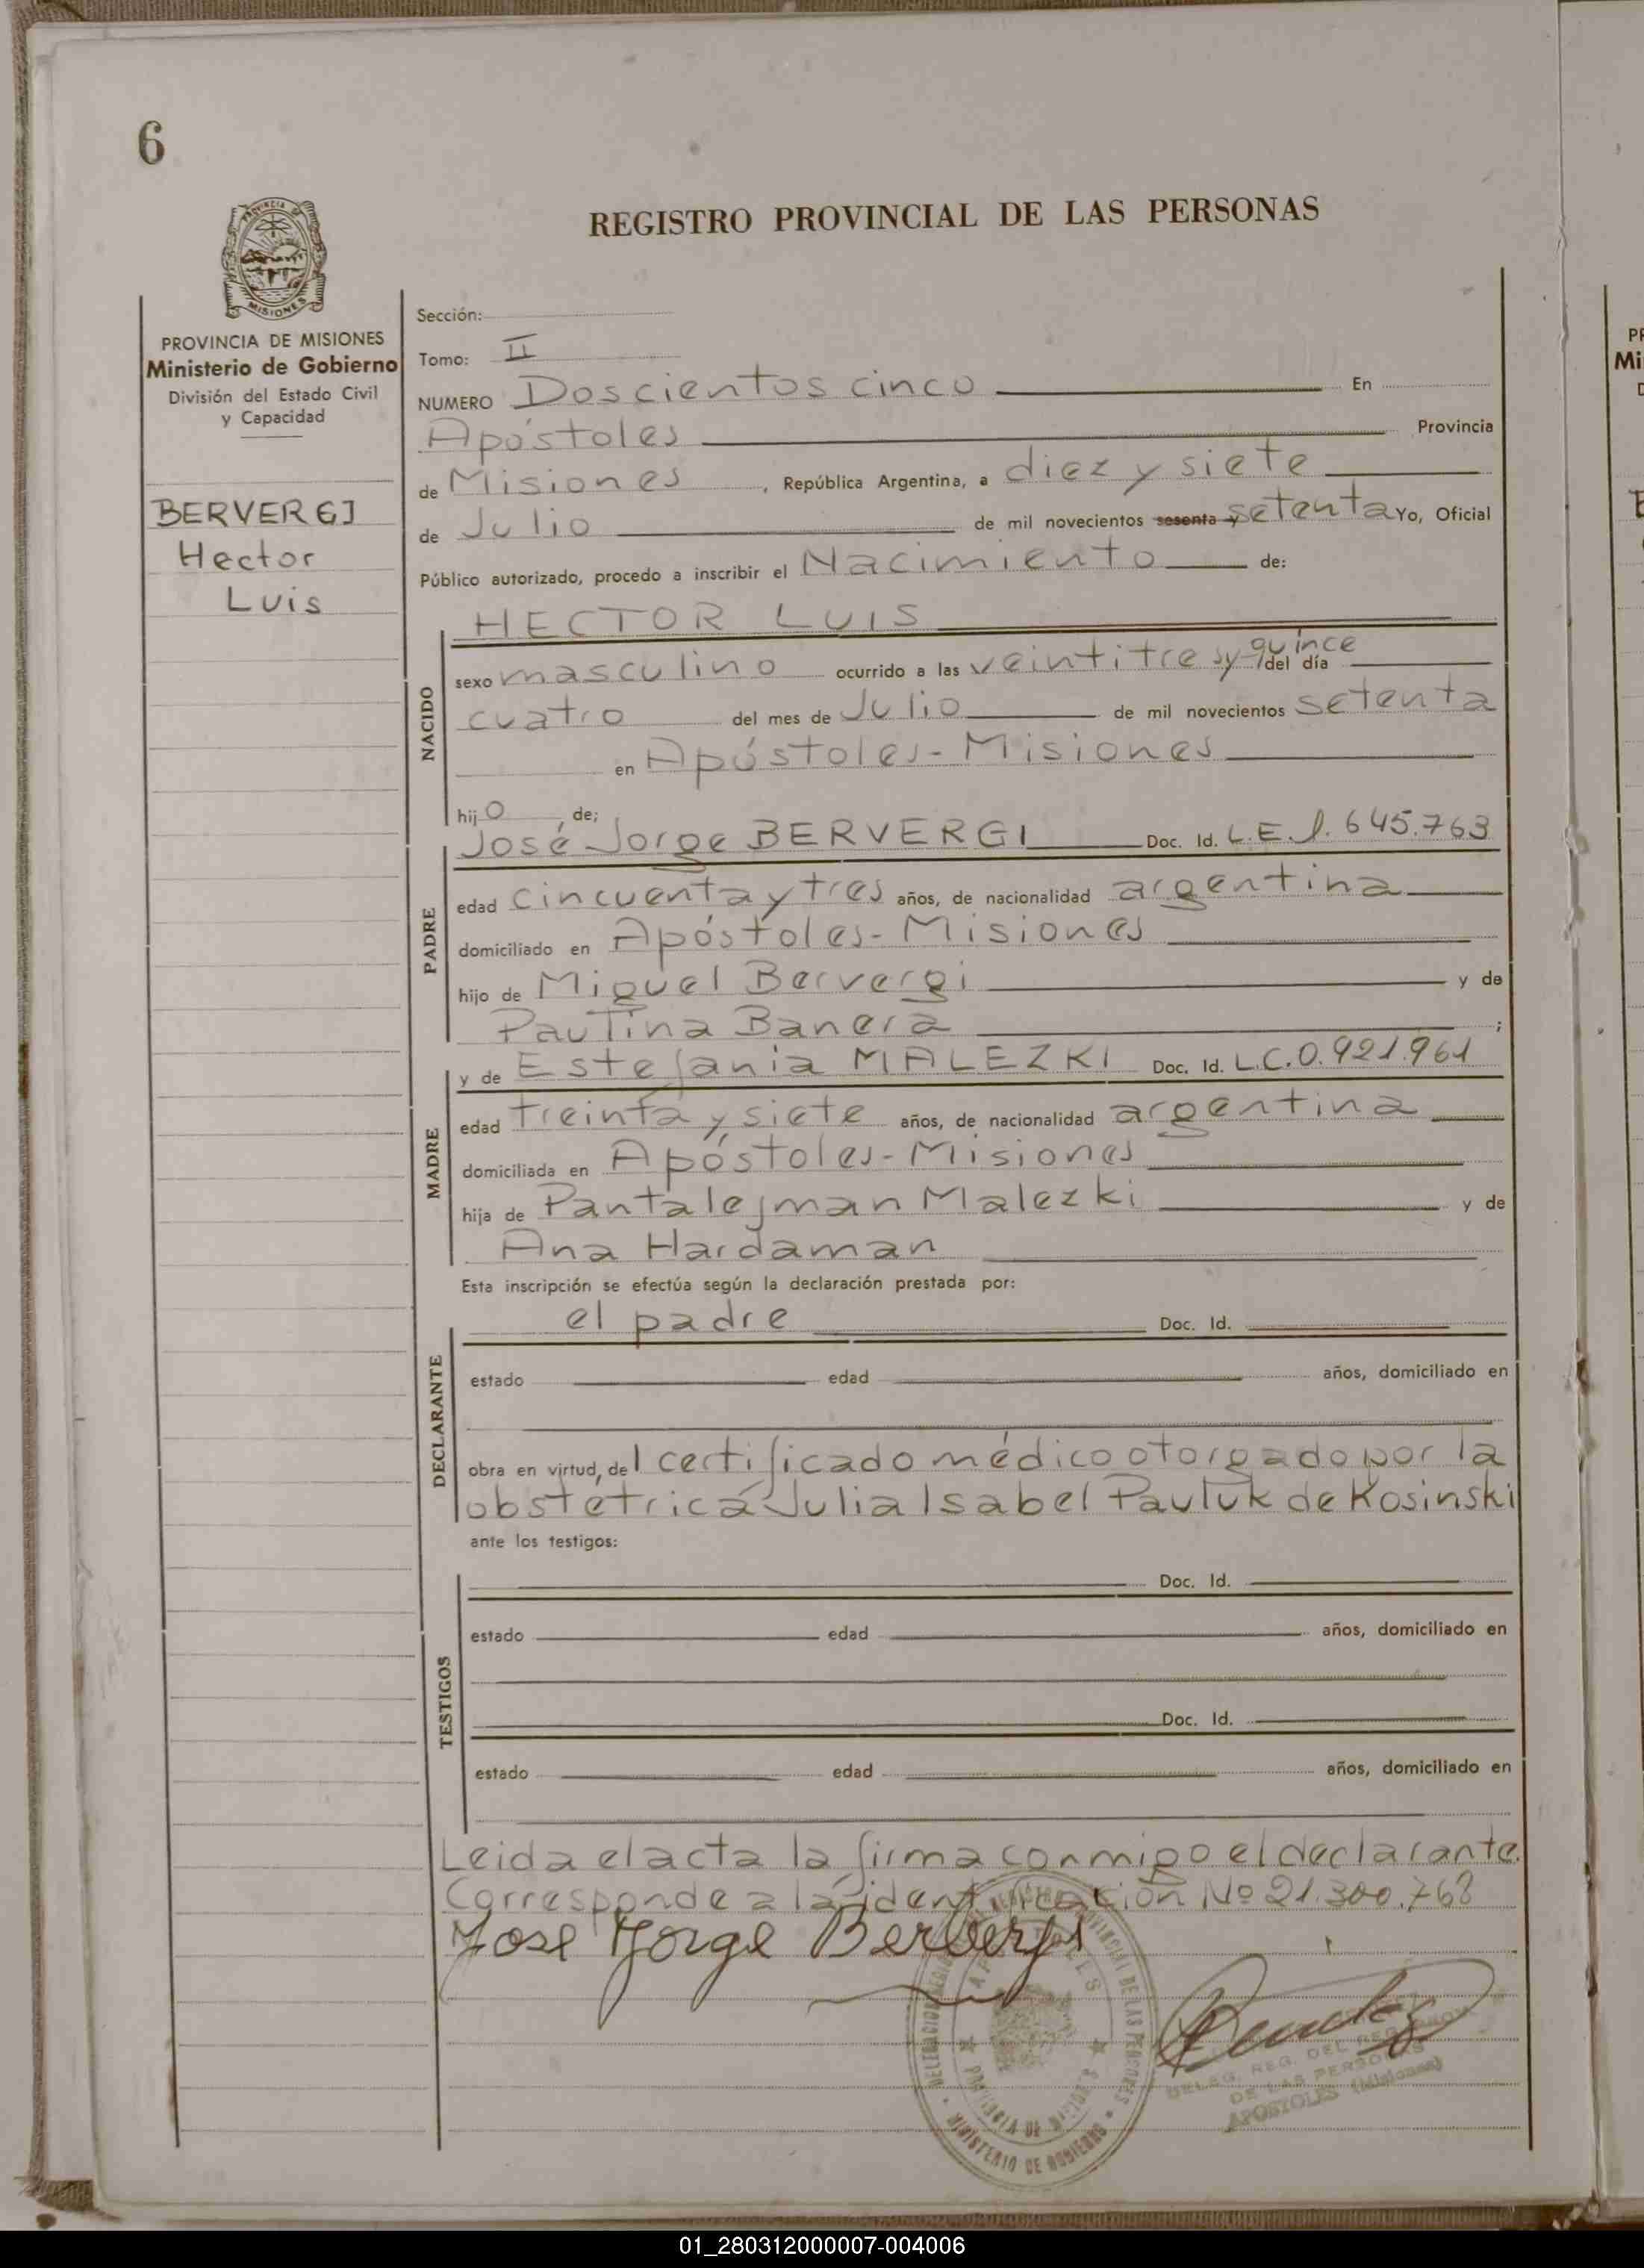 6
REGISTRO PROVINCIAL DE LAS PERSONAS
PROVINCIA DE
MISIONES
PROVINCIA DE MISIONES
Ministerio de Gobierno
División del Estado Civil
y Capacidad
BERVERGI
Hector
Luis
Sección:
Tomo: II
NUMERO Doscientos cinco En
Apóstoles Provincia
de Misiones, República Argentina, a diez y siete
de Julio de mil novecientos sesenta y setenta Yo, Oficial
Público autorizado, procedo a inscribir el Nacimiento de:
HECTOR LUIS
NACIDO
sexo masculino ocurrido a las veintitres y quince del día
cuatro del mes de Julio de mil novecientos setenta
en Apóstoles - Misiones
hijo, de;
José Jorge BERVERGI Doc. Id. L.E. 1.645.763
PADRE
edad cincuenta y tres años, de nacionalidad argentina
domiciliado en Apóstoles - Misiones
hijo de Miguel Bervergi y de
Paulina Banera ;
y de Estefania MALEZKI Doc. Id. L.C. 0.921.961
MADRE
edad treinta y siete años, de nacionalidad argentina
domiciliada en Apóstoles - Misiones
hija de Pantalejman Malezki y de
Ana Hardaman
Esta inscripción se efectúa según la declaración prestada por:
el padre Doc. Id.
DECLARANTE
estado edad años, domiciliado en
obra en virtud, del certificado médico otorgado por la
obstétrica Julia Isabel Pauluk de Kosinski
ante los testigos:
Doc. Id.
TESTIGOS
estado edad años, domiciliado en
Doc. Id.
estado edad años, domiciliado en
Leida el acta la firma conmigo el declarante.
Corresponde a la identificación Nº 21.300.768
Jose Jorge Berbergi
PROVINCIAL DE LAS PERSONAS
PROVINCIA DE MISIONES
MINISTERIO DE GOBIERNO
DELEG. REG. DEL REGISTRO
DE LAS PERSONAS
APOSTOLES (Misiones)
PR
Mi
01_280312000007-004006